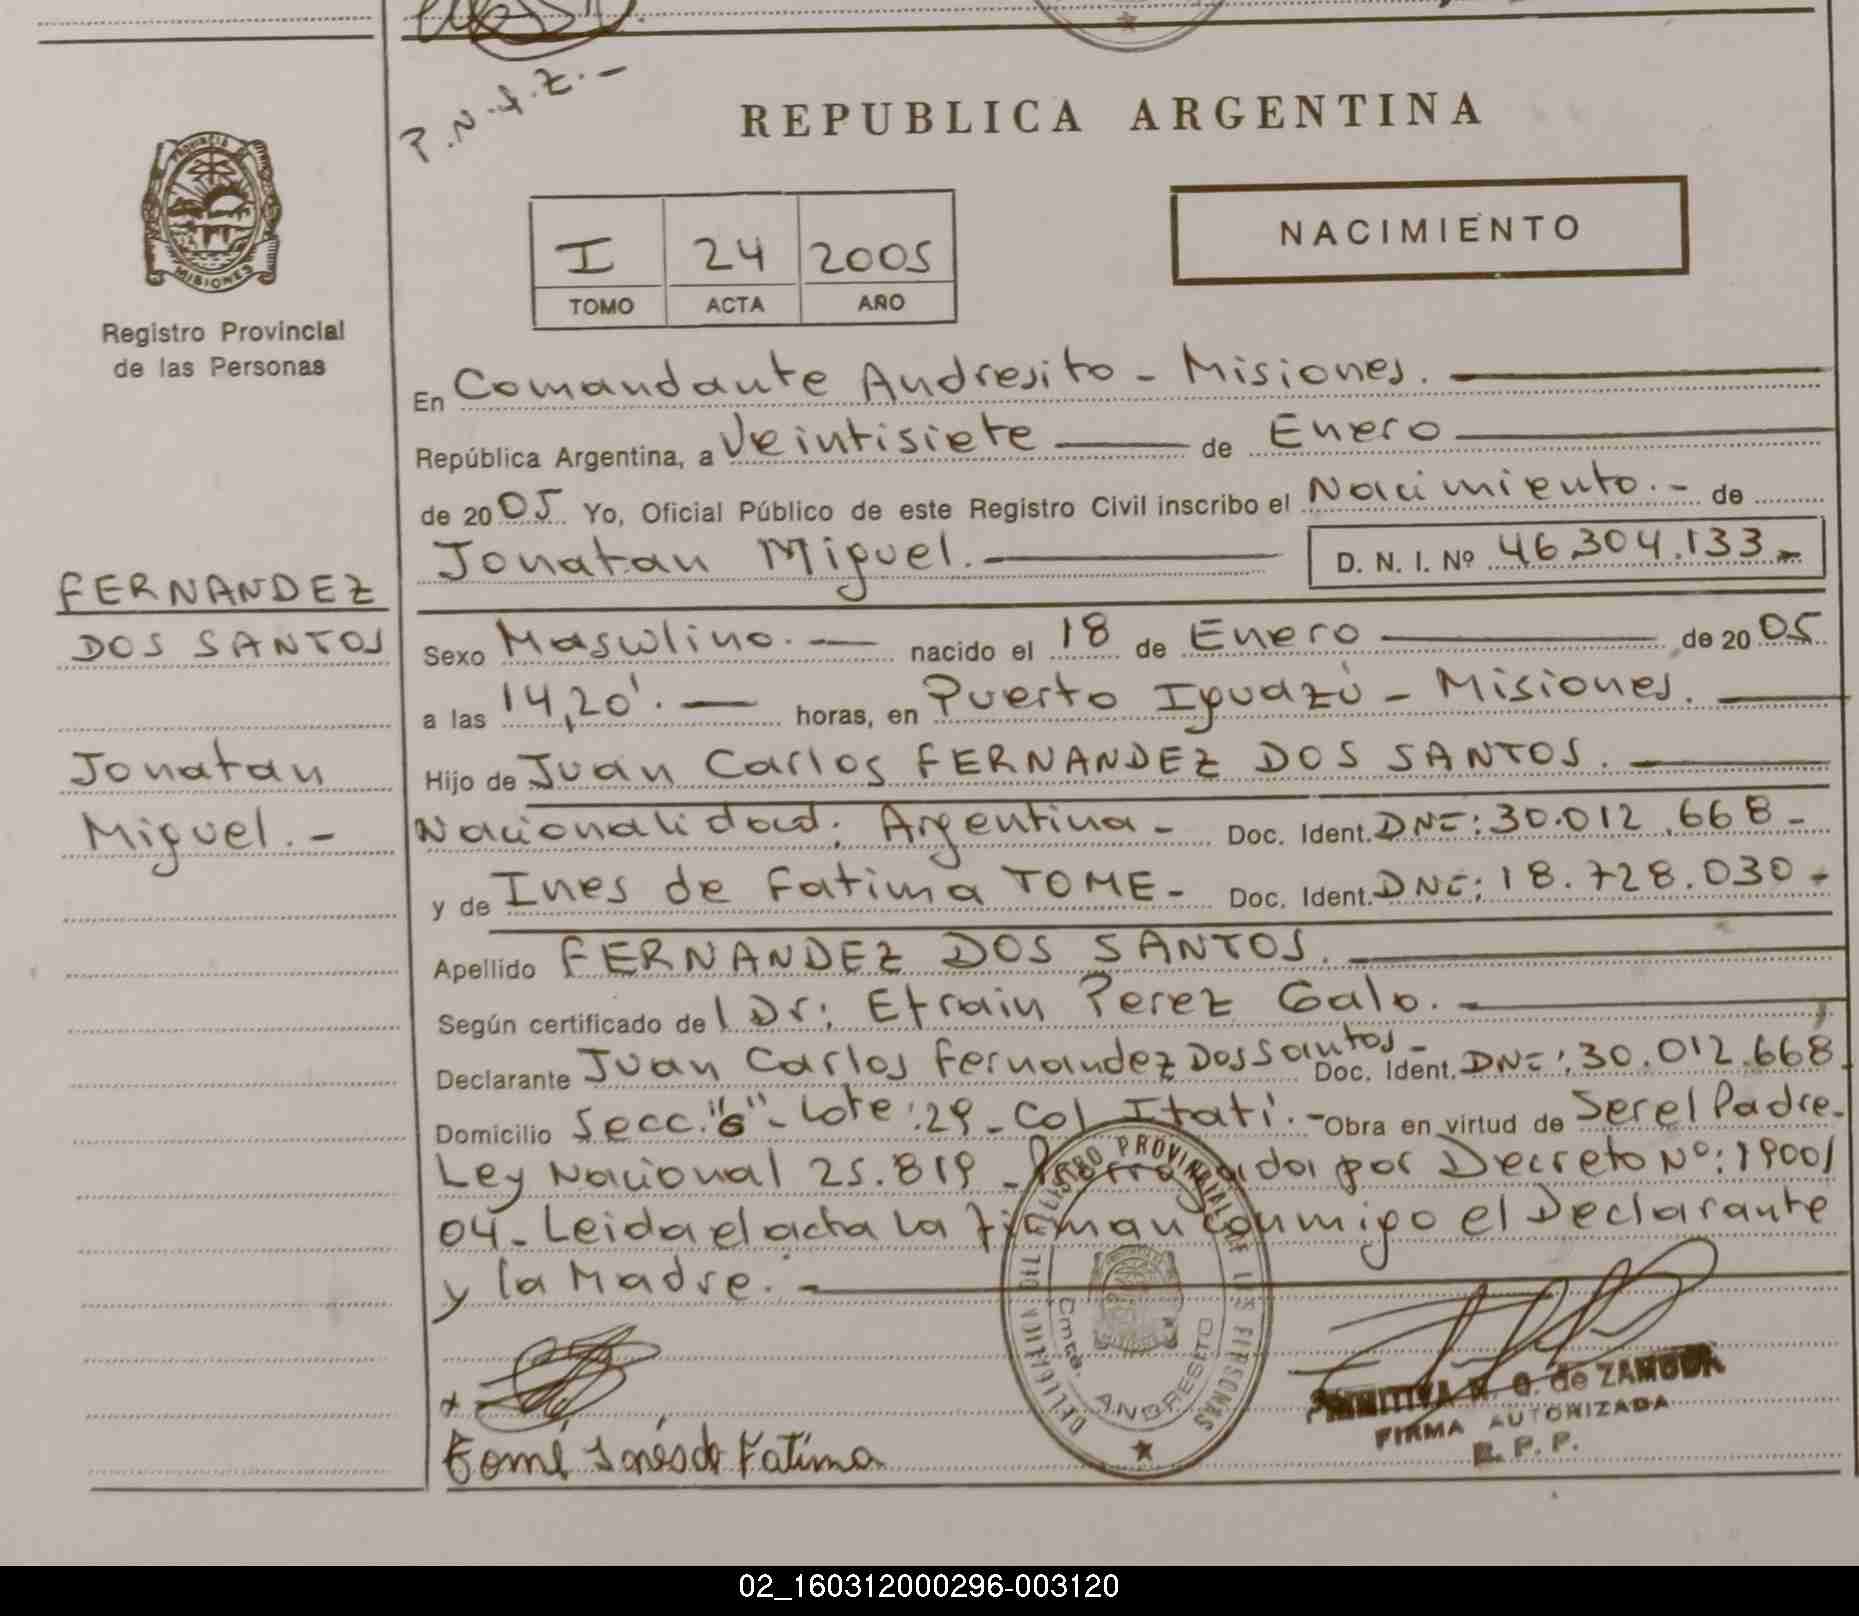 P.N.f.Z.-
REPUBLICA ARGENTINA
PROVINCIA DE
MISIONES
Registro Provincial
de las Personas
I 24 2005
TOMO ACTA AÑO
NACIMIENTO
En Comandante Andresito - Misiones.
República Argentina, a Veintisiete de Enero
de 2005 Yo, Oficial Público de este Registro Civil inscribo el Nacimiento.- de
Jonatan Miguel. D. N. I. Nº 46.304.133-
FERNANDEZ
DOS SANTOS
Jonatan
Miguel.-
Sexo Masculino.- nacido el 18 de Enero de 2005
a las 14,20'.- horas, en Puerto Iguazú - Misiones.
Hijo de Juan Carlos FERNANDEZ DOS SANTOS.
Nacionalidad: Argentina- Doc. Ident. DNI: 30.012.668-
y de Ines de Fatima TOME- Doc. Ident. DNI: 18.728.030-
Apellido FERNANDEZ DOS SANTOS.
Según certificado del Dr: Efrain Perez Galo.
Declarante Juan Carlos Fernandez Dos Santos- Doc. Ident. DNI: 30.012.668
Domicilio Secc. "6"- Lote: 29- Col. Itatí.- Obra en virtud de Ser el Padre.
Ley Nacional 25.819 - Prorrogada por Decreto Nº: 1900/
04- Leida el acta la firman conmigo el Declarante
y la Madre.-
DELEGACION DEL REGISTRO PROVINCIAL DE LAS PERSONAS
Cmte. ANDRESITO
Tomé Inés de Fatima
R. G. de ZAMUDIA
FIRMA AUTORIZADA
R. P. P.
02_160312000296-003120